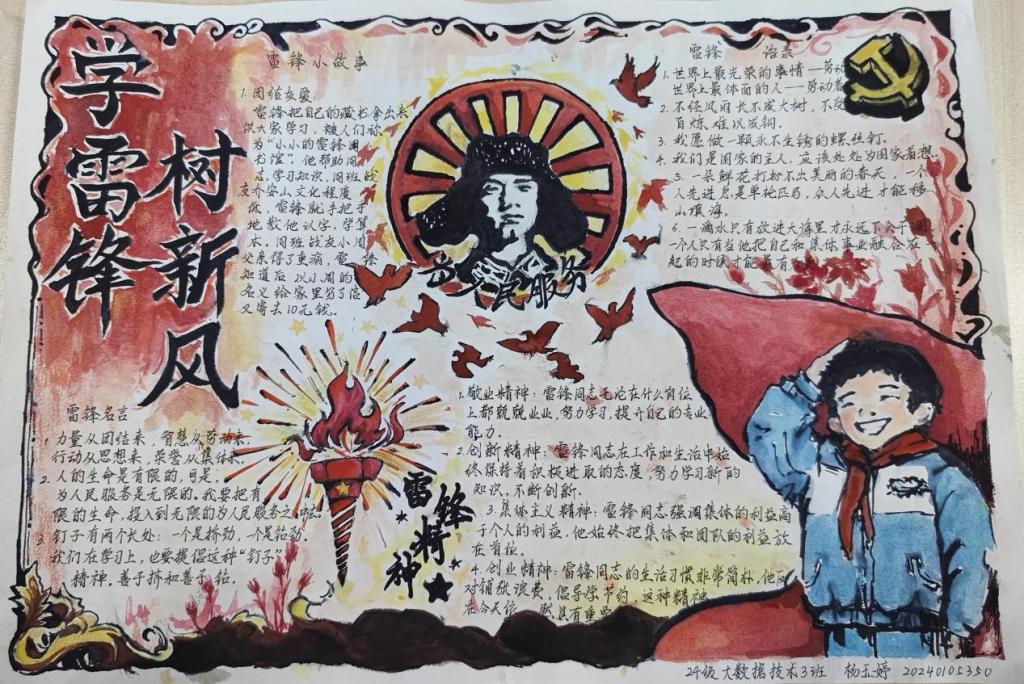 学雷锋
树新风
雷锋小故事
1. 团结友爱
雷锋把自己的藏书拿出来
供大家学习，被人们称
为“小小的雷锋图
书馆”。他帮助同
志学习知识，同班战
友乔安山文化程度
低，雷锋就手把手
地教他认字，学算
术，同班战友小周
父亲得了重病，雷锋
知道后，以小周的
名义给家里写了信
又寄去10元钱。
为人民服务
雷锋 语录
1. 世界上最光荣的事情—劳动
世界上最体面的人—劳动者
2. 不经风雨长不成大树，不受
百炼，难以成钢。
3. 我愿做一颗永不生锈的螺丝钉。
4. 我们是国家的主人，应该处处为国家着想。
5. 一朵鲜花打扮不出美丽的春天，一个
人先进总是单枪匹马，众人先进才能移
山填海。
6. 一滴水只有放进大海里才永远不会干涸
一个人只有当他把自己和集体事业融合在
起的时候才能最有
雷锋名言
1. 力量从团结来，智慧从劳动来，
行动从思想来，荣誉从集体来。
2. 人的生命是有限的，可是，
为人民服务是无限的，我要把有
限的生命，投入到无限的为人民服务之中去
3. 钉子有两个长处：一个是挤劲，一个是钻劲，
我们在学习上，也要提倡这种“钉子”
精神，善于挤和善于钻。
雷锋精神
1. 敬业精神：雷锋同志无论在什么岗位
上都兢兢业业，努力学习，提升自己的专业
能力。
2. 创新精神：雷锋同志在工作和生活中始
终保持着积极进取的态度，努力学习新的
知识，不断创新。
3. 集体主义精神：雷锋同志强调集体的利益高
于个人的利益，他始终把集体和团队的利益放
在首位。
4. 创业精神：雷锋同志的生活习惯非常简朴，他
对铺张浪费，倡导节约，这种精神
在今天仍 然具有重要
24级大数据技术3班 杨玉婷 20240105350